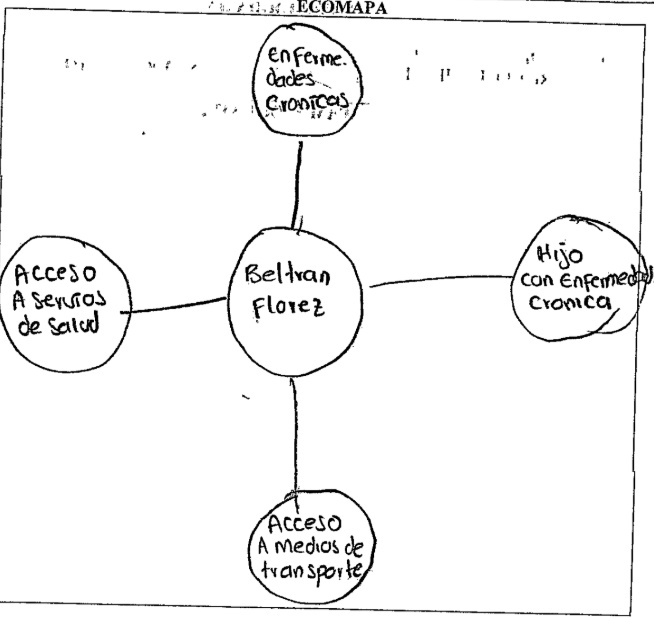 ECOMAPA
Enferme.
dades
Cronicas
Acceso
A servicios
de salud
Beltran
Florez
Hijo
con Enfermedad
Cronica
Acceso
A medios de
transporte